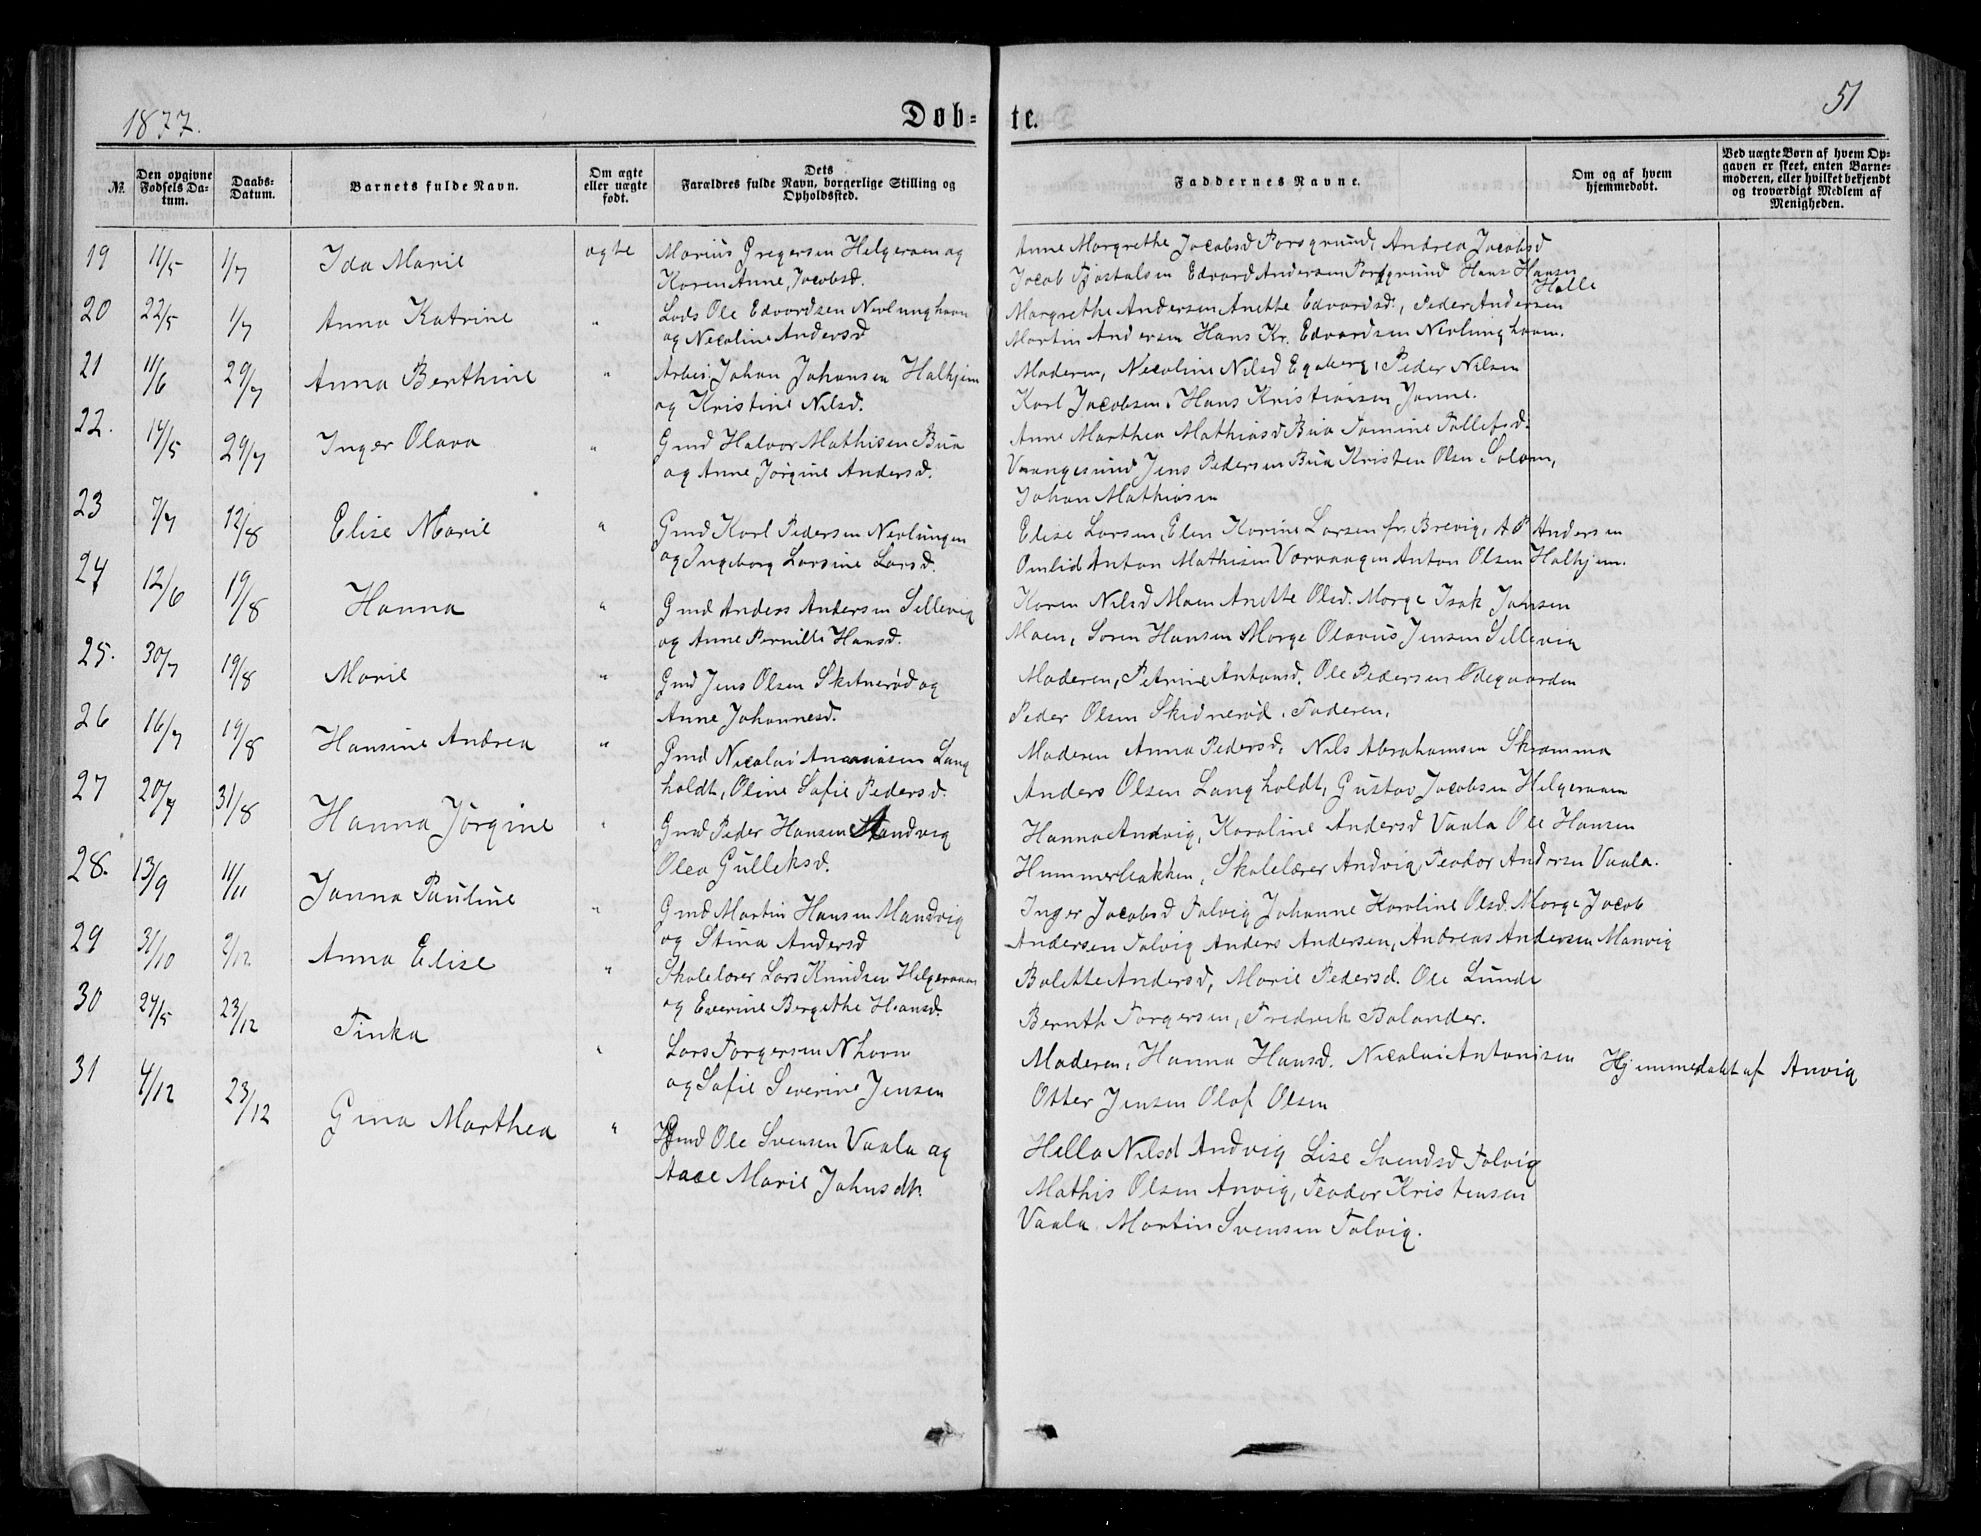 1877.
Døb-
te.
51
№
Den opgivne Fødsels Datum.
Daabs-Datum.
Barnets fulde Navn.
Om ægte eller uægte født.
Dets Forældres fulde Navn, borgerlige Stilling og Opholdssted.
Faddernes Navne.
Om og af hvem hjemmedøbt.
Ved uægte Børn af hvem Opgaven er skeet, enten Barnemoderen, eller hvilket bekjendt og troværdigt Medlem af Menigheden.
19 11/5 1/7 Ida Marie ægte Marius Gregersen Helgeroen og
Karen Anne Jacobsd.
Anne Margrethe Jacobsd Porsgrund, Andrea Jacobsd
Jacob Tjostalsen Edvard Andersen Porsgrund Hans Hansen
Halle
20 22/5 1/7 Anna Katrine " Lods Ole Edvardsen Nevlunghavn
og Nicoline Andersd
Margrethe Andersen Anette Edvardsd., Peder Andersen
Martin Andersen Hans Kr. Edvardsen Nevlunghavn.
21 11/6 29/7 Anna Berthine " Arbei. Johan Johansen Halhjem
og Kristine Nilsd.
Moderen, Nicoline Nilsd Egeberg, Peder Nilsen
Karl Jacobsen, Hans Kristiansen Janne.
22. 14/5 29/7 Inger Olava " Gmd Halvor Mathisen Bua
og Anne Jørgine Andersd.
Anne Marthea Mathiasd Bua Tomine Tollefsd.
Vrangesund Jens Pedersen Bua Kristen Olsen Solum,
Johan Mathiasen
23 7/7 12/8 Elise Marie " Gmd Karl Pedersen Nevlungen
og Ingeborg Larsine Larsd.
Elise Larsen, Elen Karine Larsen fr. Brevig, A P Andersen
Omlid Anton Mathisen Værvaagen Anton Olsen Halhjem.
24 12/6 19/8 Hanna " Gmd Anders Andersen Sillevig
og Anne Pernille Hansd.
Karen Nilsd Moen Anette Olsd. Morge Isak Johsen
Moen, Søren Hansen Morge Olavus Jensen Sillevig
25. 30/7 19/8 Marie " Gmd Jens Olsen Skitnerød og
Anne Johannesd.
Moderen, Petrine Antonsd. Ole Pedersen Ødegaarden
Peder Olsen Skidnerød, Faderen,
26 16/7 19/8 Hansine Andrea " Gmd Nicolai Ananiasen Lang
holdt, Oline Sofie Pedersd.
Moderen Anna Pedersd, Nils Abrahamsen Skramma
Anders Olsen Langholdt, Gustav Jacobsen Helgeroen
27 20/7 31/8 Hanna Jørgine " Gmd Peder Hansen Aandvig
Olea Gulleksd.
Hanna Andvig, Karoline Andersd Vaala Ole Hansen
Hummerbakken, Skolelærer Andvig, Teodor Andersen Vaala.
28. 13/9 11/11 Janna Pauline " Gmd Martin Hansen Mandvig
og Stina Andersd
Inger Jacobsd Tolvig Johanne Karoline Olsd. Morge Jacob
Andersen Tolvig Anders Andersen, Andreas Andersen Manvig
29 31/10 2/12 Anna Elise " Skolelærer Lars Knudsen Helgeroen
og Everine Bergithe Hansd
Bolette Andersd, Marie Pedersd. Ole Lunde
Bernth Torgersen, Fredrik Bolander.
30 24/5 23/12 Tinka " Lars Torgersen Nhavn
og Sofie Severine Jensen
Moderen, Hanna Hansd. Nicolai Antonisen
Otter Jensen Olaf Olsen
Hjemmedøbt af Anvig
31 4/12 23/12 Gina Marthea " Gmd Ole Svensen Vaala og
Aase Marie Johnsdtr.
Hella Nilsd Andvig Lise Svendsd Tolvig
Mathis Olsen Anvig, Teodor Kristensen
Vaala, Martin Svensen Tolvig.